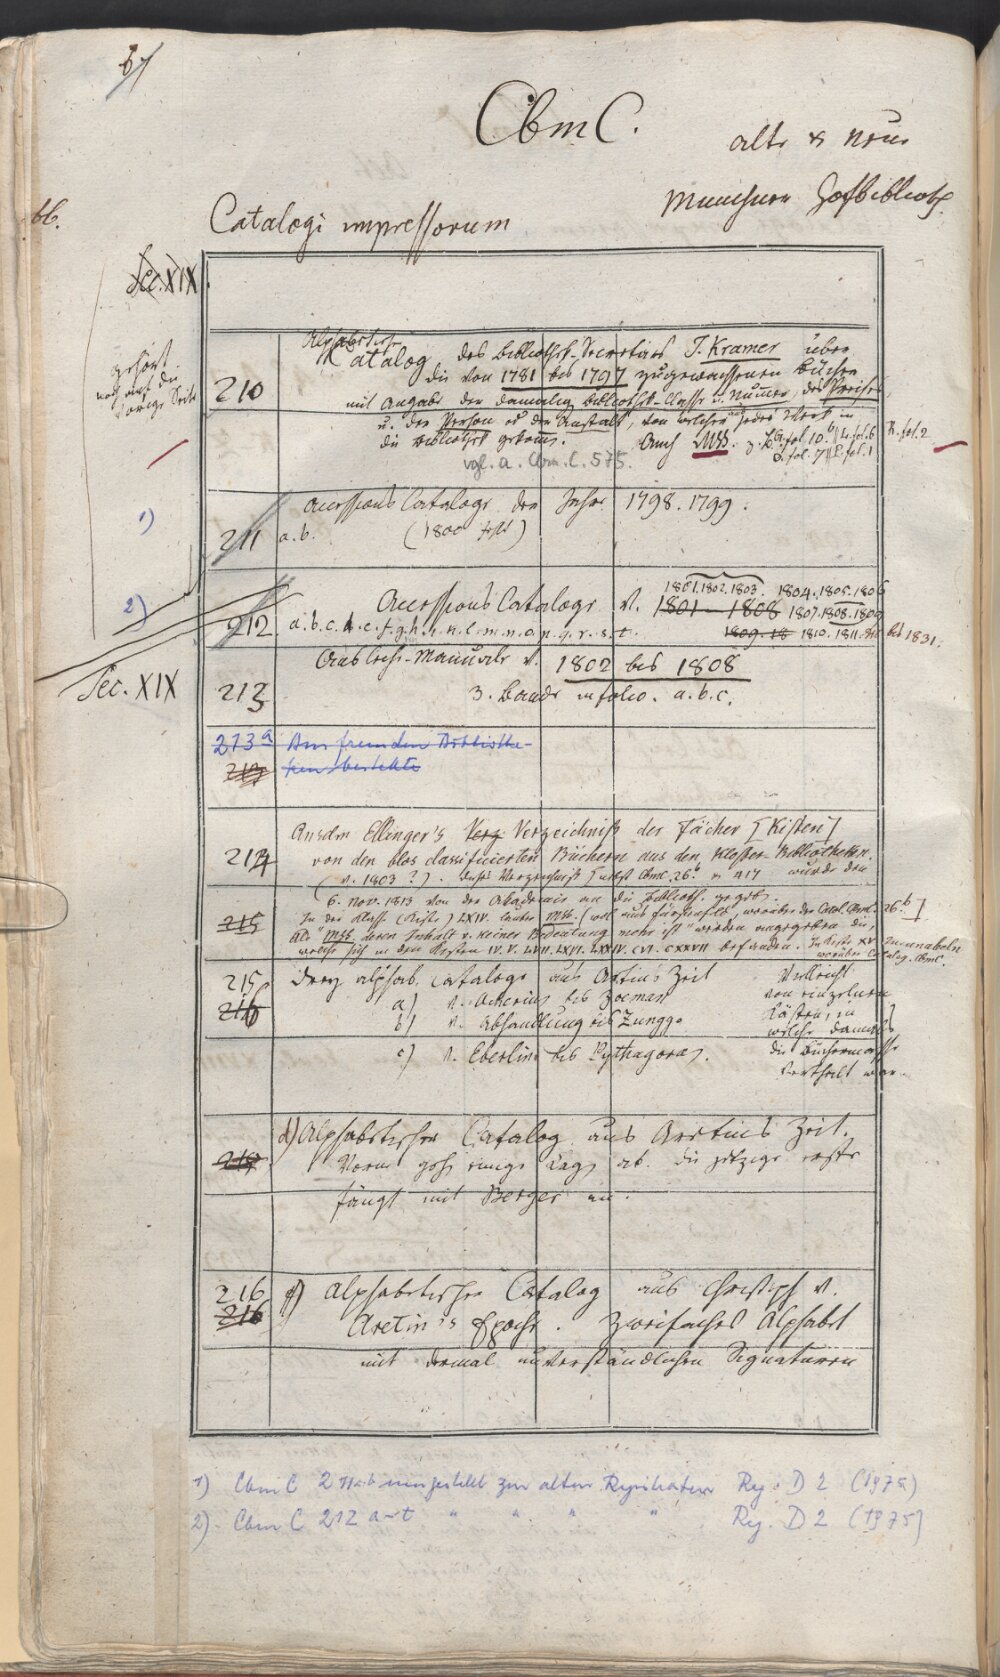 CbmC.
alte & neue
Münchner Hofbibliothek.
66.
Catalogi impressorum
Sec. XIX
gehört
noch auf die
vorige Seite
210
Alphabetischer
Katalog des Bibliothek-Secretärs J. Kramer über
die von 1781 bis 1797 zugewachsenen Bücher
mit Angabe der damalig Bibliothek-Classe u. Nummer, des Preises,
u. der Person od der Anstalt, von welcher jedes Werk in
die Bibliothek gekom.
Auch MSS. z. B. fol. 10.
vgl. a. Cbm.C. 575.
1)
211 a.b.
Accessions Cataloge der Jahre 1798. 1799.
(1800 fehlt)
2)
212
Accessions Cataloge v. 1801 - 1808
1801. 1802. 1803. 1804. 1805. 1806
1807. 1808. 1809
a.b.c.d.e.f.g.h.i.k.l.m.n.o.p.q.r.s.t.
1809-18 1810. 1811. bis 1831.
Sec. XIX
213
Ausleih-Manuale v. 1802 bis 1808
3. Bände in folio. a.b.c.
213a Aus fremden Bibliothe-
ken bestellte
214
Anselm Ellinger's Verz Verzeichniß der Fächer [Kisten]
von den blos classificierten Büchern aus den Kloster-Bibliotheken.
(v. 1803?). Dieses Verzeichniß [nebst Cbmc. 26. u 417 wurde den
6. Nov. 1813 von der Akademie an die Biblioth. gegeb.
215
In der Kiste LXIV. lauter MSS.
als "MSS. deren Inhalt v. keiner Bedeutung mehr ist" werden angegeben die,
welche sich in den Kisten IV. V. LVII. LXVI. LXXIV. CVI. CXXVII befanden. In Kiste XV Incunabeln
worüber Catalog. Cbmc.
215
216
Drey alphab. Cataloge aus Aretins Zeit
a) v. Ackerius bis Zoeman
b) v. Abhandlung bis Zunggo
c) v. Eberlin bis Pythagoras.
Vielleicht
von einzelnen
Kästen, in
welche damals
die Büchermasse
vertheilt war.
d) Alphabetischer Catalog aus Aretins Zeit.
Vorne geht einige Lage ab. die jetzige erste
fängt mit Berger an.
216
216
Alphabetischer Catalog aus Christoph v.
Aretin's Epoche. Zweifaches Alphabet
mit dermal unverständlichen Signaturen
1) Cbm C 211 a.b umgestellt zur alten Registratur Reg. D 2 (1975)
2) Cbm C 212 a-t " " " " Reg. D 2 (1975)